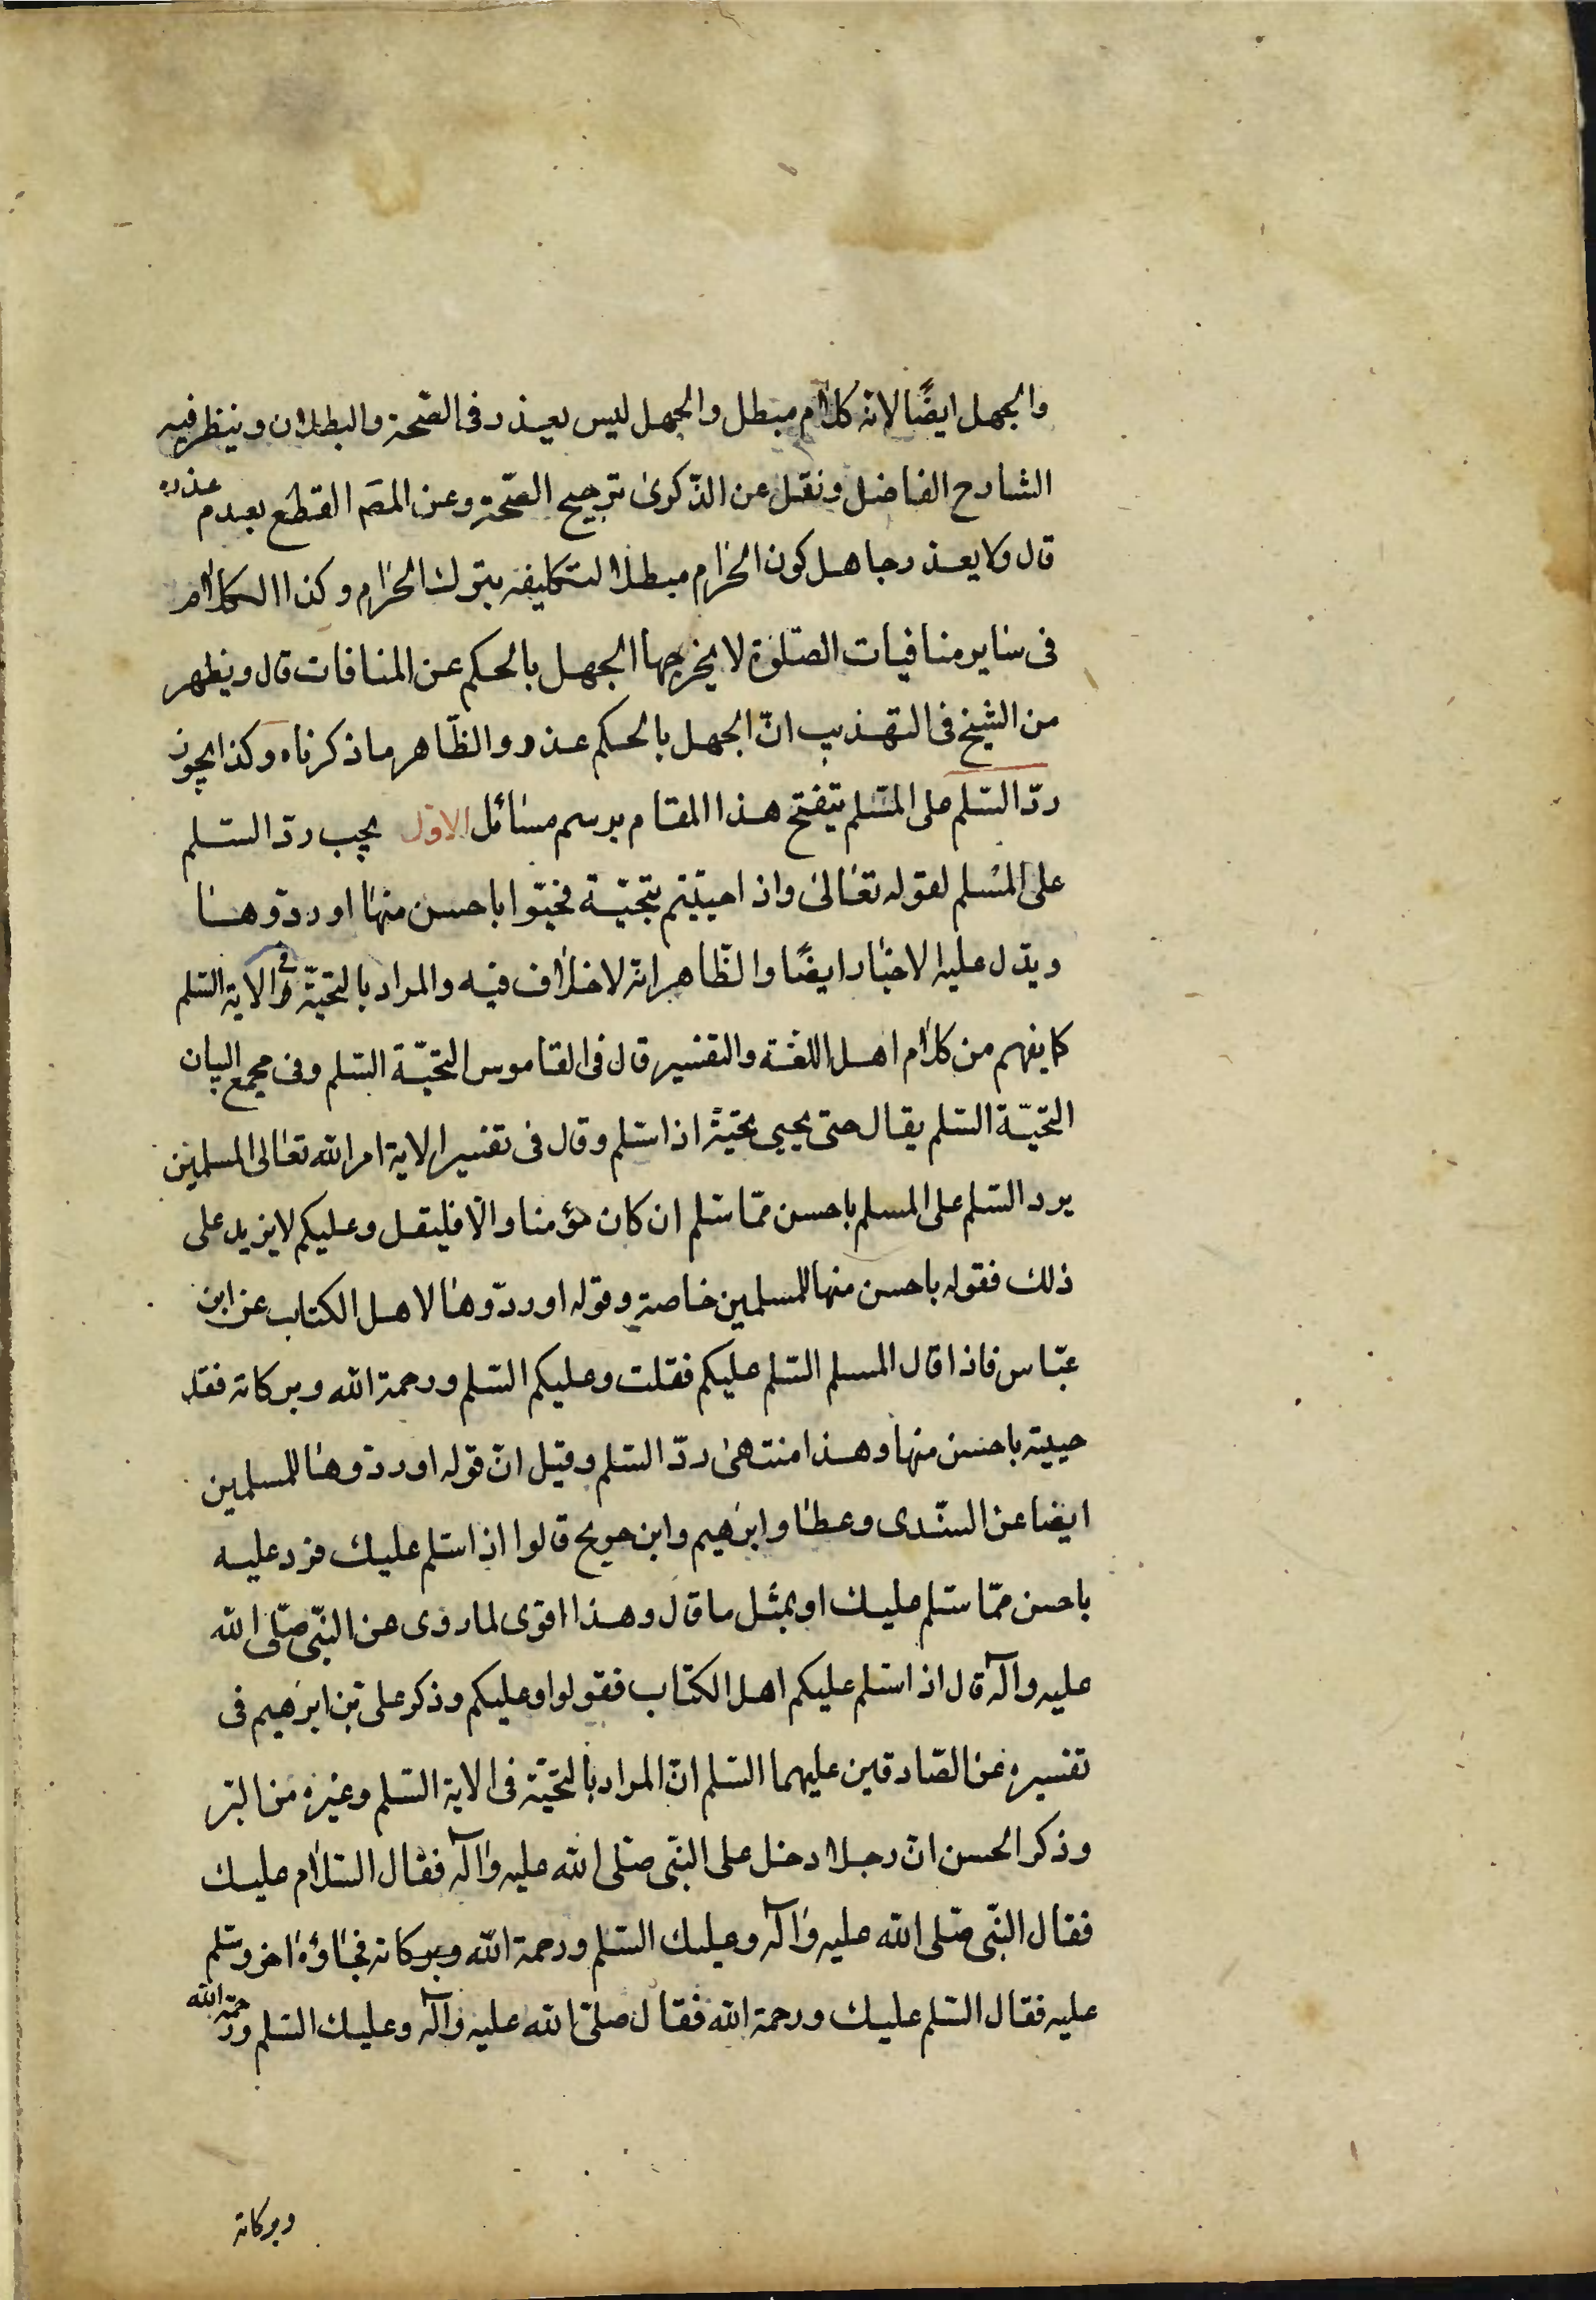 والجهل ايضًا لانه كلام مبطل والجهل ليس بعذر فى الصّحة والبطلان وينظر فيه
الشارح الفاضل ونقل عن الذّكرى ترجيح الصّحة وعن المصَ القطع بعدم عذره
قال ولا يعذر جاهل كون الحرام مبطلا لتكليفه بترك الحرام وكذا الكلام
فى ساير منافيات الصّلوة لا يخرجها الجهل بالحكم عن المنافات قال ويظهر
من الشيخ فى التهذيب انّ الجهل بالحكم عذر والظّاهر ما ذكرناه وكذا يجوز
ردّ السّلم على المسّلم يتفتح هذا المقام برسم مسائل الاوّل يجب ردّ السّلم
على المسْلم لقوله تعالى واذا حييتم بتحيّة فحيّوا باحسن منها او ردّوها
ويدّل عليه الاخبار ايضًا والظّاهر انه لا خلاف فيه والمراد بالتحيّة فى الاية السّلم
كما يفهم من كلام اهل اللغة والتفسير قال فى القاموس التحيّة السّلم وفى مجمع البيان
التحيّة السّلم يقال حتى يحيى تحيّة اذا سّلم وقال فى تفسير الاية امر الله تعالى المسلمين
برد السّلم على المسلم باحسن ممّا سّلم ان كان مؤمنا والّا فليقل وعليكم لا يزيد على
ذلك فقوله باحسن منها للمسلمين خاصة وقوله او ردّوها لاهل الكتاب عن ابن
عبّاس فاذا قال المسلم السّلم عليكم فقلت وعليكم السّلم ورحمة الله وبركاته فقد
حييته باحسن منها وهذا منتهى ردّ السّلم وقيل انّ قوله او ردّوها للمسلمين
ايضا عن السّدى وعطا وابرهيم وابن جريح قالوا اذا سّلم عليك فرد عليه
باحسن ممّا سّلم عليك او بمثل ما قال وهذا اقوى لما روى عن النّبى صّلى الله
عليه وآله قال اذا سّلم عليكم اهل الكتاب فقولوا وعليكم وذكر على بن ابرهيم فى
تفسيره عن الصّادقين عليهما السّلم انّ المراد بالتحيّة فى الاية السّلم وغيره من البّر
وذكر الحسن انّ رجلا دخل على النبّى صّلى الله عليه وآله فقال السّلام عليك
فقال النّبى صّلى الله عليه وآله وعليك السّلم ورحمة الله وبركاته فجاؤه اخر وسّلم
عليه فقال السّلم عليك ورحمة الله فقال صلّى الله عليه وآله وعليك السّلم ورحمة الله
وبركاته